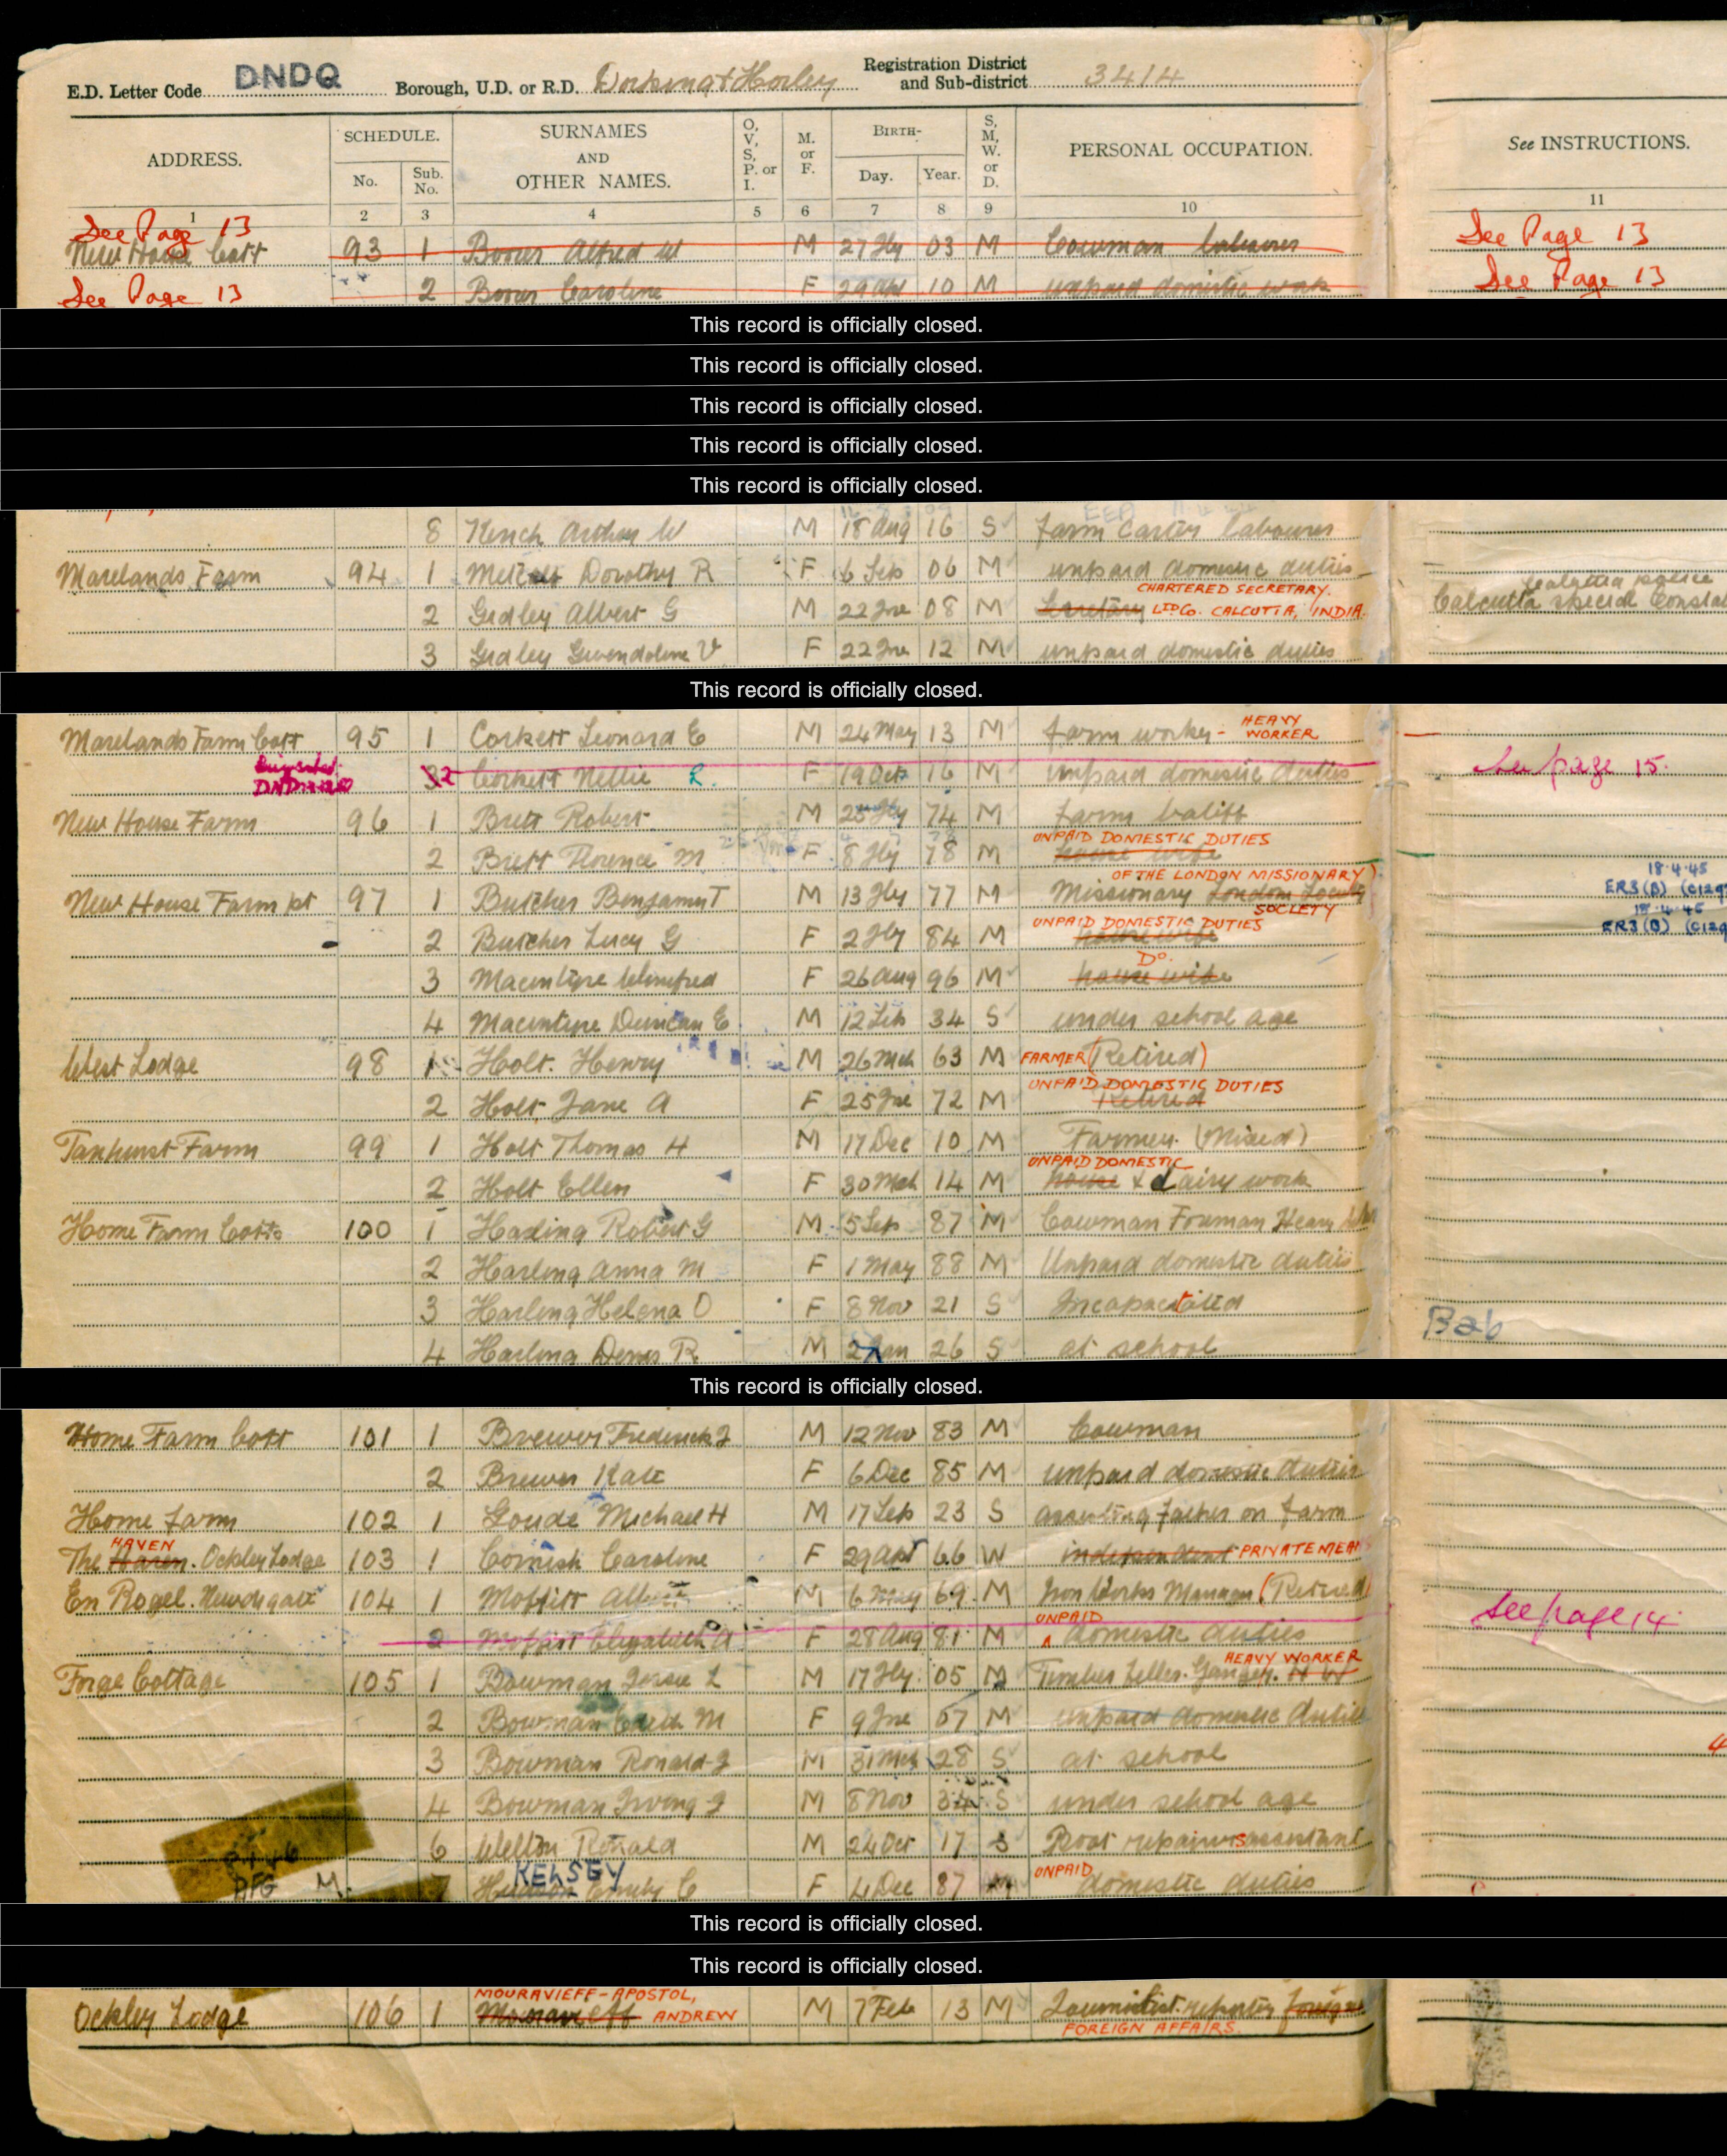 E.D. Letter Code DNDQ Borough, U.D. or R.D. Dorking & Horley Registration District and Sub-district 3414
ADDRESS. SCHEDULE. No. Sub. No. SURNAMES AND OTHER NAMES. O, V, S, P. or I. M. or F. BIRTH- Day. Year. S, M, W. or D. PERSONAL OCCUPATION. See INSTRUCTIONS.
1 2 3 4 5 6 7 8 9 10 11
See Page 13 See Page 13
New House Cott 93 1 Alfred W M 27 Jly 03 M Cowman labourer
See Page 13 2 Caroline F 29 Apl 10 M unpaid domestic work See Page 13
This record is officially closed.
This record is officially closed.
This record is officially closed.
This record is officially closed.
This record is officially closed.
8 Arthur W M 18 Aug 16 S farm carter labourer
Marelands Farm 94 1 Dorothy R F 6 Feb 06 M unpaid domestic duties
CHARTERED SECRETARY. Calcutta police
2 Gidley Albert G M 22 Jne 08 M Secretary LTD Co. CALCUTTA, INDIA. Calcutta special
3 Gidley Gwendoline V F 22 Jne 12 M unpaid domestic duties
This record is officially closed.
Marelands Farm Cott 95 1 Corkett Leonard E M 24 May 13 M farm worker - HEAVY WORKER
2 Corkett Nellie R. F 19 Oct 16 M unpaid domestic duties See page 15.
New House Farm 96 1 Brett Robert M 25 Jly 74 M farm bailiff
UNPAID DOMESTIC DUTIES
2 Brett Florence M F 8 Jly 78 M house wife 18.4.45
OF THE LONDON MISSIONARY ER3(B)
New House Farm pt 97 1 Butcher Benjamin T M 13 Jly 77 M Missionary London
SOCIETY
UNPAID DOMESTIC DUTIES ER3(B)
2 Butcher Lucy G F 2 Jly 84 M house wife
Do.
3 Macintyre Winifred F 26 Aug 96 M house wife
4 Macintyre Duncan E M 12 Feb 34 S under school age
West Lodge 98 1 Holt. Henry M 26 Mch 63 M FARMER (Retired)
UNPAID DOMESTIC DUTIES
2 Holt Jane A F 25 Jne 72 M Retired
Tanhurst Farm 99 1 Holt Thomas H M 17 Dec 10 M Farmer. (Mixed)
UNPAID DOMESTIC
2 Holt Ellen F 30 Mch 14 M house & dairy work
Home Farm Cotts 100 1 Harling Robert G M 5 Sep 87 M Cowman Foreman Heavy
2 Harling Anna M F 1 May 88 M Unpaid domestic duties
3 Harling Helena O F 8 Nov 21 S Incapacitated
4 Harling Denis R M 2 Jan 26 S at school
This record is officially closed.
Home Farm Cott 101 1 Brewer Frederick J M 12 Nov 83 M Cowman
2 Brewer Kate F 6 Dec 85 M unpaid domestic duties
Home Farm 102 1 Goude Michael H M 17 Feb 23 S assisting father on farm
HAVEN
The Haven. Ockley Lodge 103 1 Cornish Caroline F 29 Apl 66 W independent PRIVATE MEANS
En Rogel. Newdigate 104 1 Moffitt Albert M 6 May 69 M Iron Works Manager (Retired)
UNPAID See page 14
2 Moffitt Elizabeth A F 28 Aug 81 M domestic duties
HEAVY WORKER
Forge Cottage 105 1 Bowman L M 17 Jly 05 M Timber Feller. Ganger. H W
2 Bowman M F 9 Jne 07 M unpaid domestic duties
3 Bowman Ronald J M 31 Mch 28 S at school
4 Bowman Irving J M 8 Nov 34 S under school age
6 Welton Ronald M 24 Oct 17 S Boat repairers assistant
KELSEY UNPAID
7 Emily C F 4 Dec 87 M domestic duties
This record is officially closed.
This record is officially closed.
MOURAVIEFF-APOSTOL,
Ockley Lodge 106 1 Mouravieff ANDREW M 7 Feb 13 M Journalist. reporting foreign
FOREIGN AFFAIRS